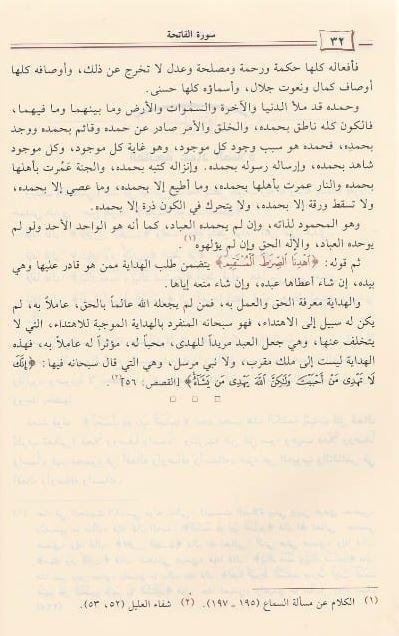 ٣٢
سورة الفاتحة
فأفعاله كلها حكمة ورحمة ومصلحة وعدل لا تخرج عن ذلك، وأوصافه كلها
أوصاف كمال ونعوت جلال، وأسماؤه كلها حسنى.
وحمده قد ملأ الدنيا والآخرة والسموات والأرض وما بينهما وما فيهما،
فالكون كله ناطق بحمده، والخلق والأمر صادر عن حمده وقائم بحمده ووجد
بحمده، فحمده هو سبب وجود كل موجود، وهو غاية كل موجود، وكل موجود
شاهد بحمده، وإرساله رسوله بحمده. وإنزاله كتبه بحمده، والجنة عمّرت بأهلها
بحمده والنار عمرت بأهلها بحمده، وما أطيع إلا بحمده، وما عصي إلا بحمده،
ولا تسقط ورقة إلا بحمده، ولا يتحرك في الكون ذرة إلا بحمده.
وهو المحمود لذاته، وإن لم يحمده العباد، كما أنه هو الواحد الأحد ولو لم
يوحده العباد، والإله الحق وإن لم يؤلهوه(١).
ثم قوله: ﴿اهْدِنَا الصِّرَاطَ الْمُسْتَقِيمَ﴾ يتضمن طلب الهداية ممن هو قادر عليها وهي
بيده، إن شاء أعطاها عبده، وإن شاء منعه إياها.
والهداية معرفة الحق والعمل به، فمن لم يجعله الله عالماً بالحق، عاملاً به، لم
يكن له سبيل إلى الاهتداء، فهو سبحانه المنفرد بالهداية الموجبة للاهتداء، التي لا
يتخلف عنها، وهي جعل العبد مريداً للهدى، محباً له، مؤثراً له عاملاً به، فهذه
الهداية ليست إلى ملك مقرب، ولا نبي مرسل، وهي التي قال سبحانه فيها: ﴿إِنَّكَ
لَا تَهْدِي مَنْ أَحْبَبْتَ وَلَكِنَّ اللَّهَ يَهْدِي مَن يَشَاءُ﴾ [القصص: ٥٦](٢).
(١) الكلام عن مسألة السماع (١٩٥ - ١٩٧). (٢) شفاء العليل (٥٢، ٥٣).